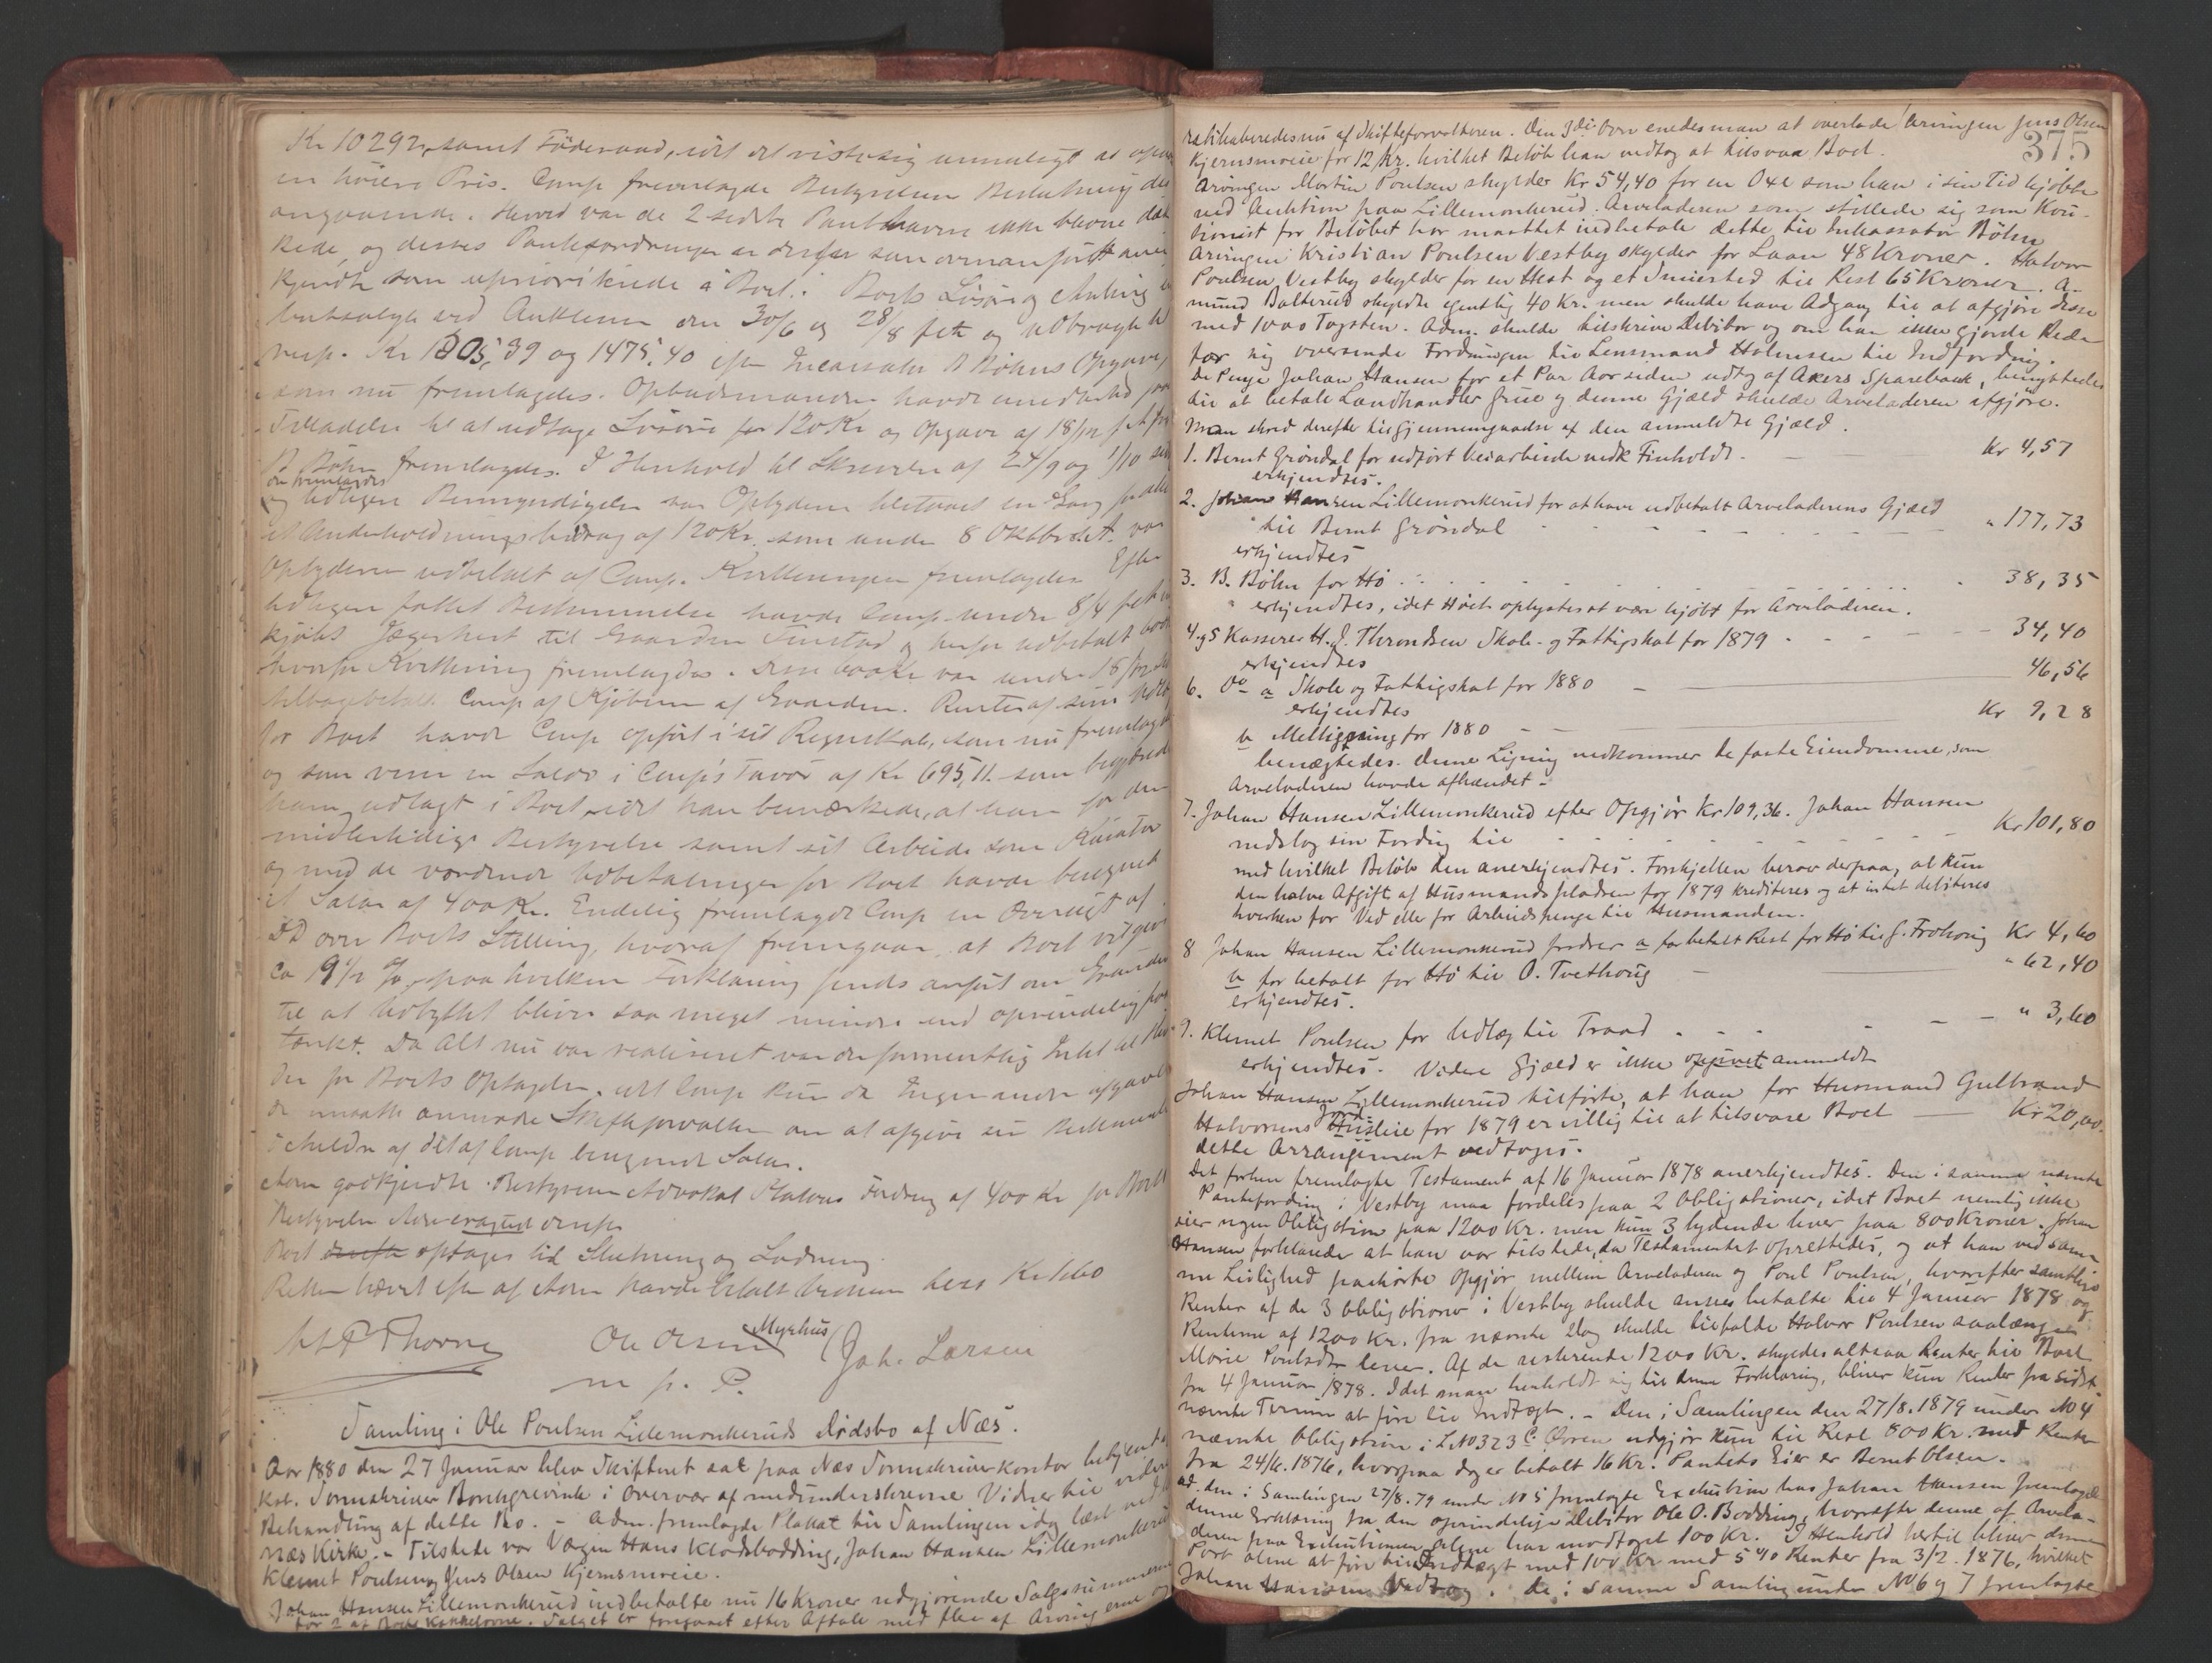 Kr 10292, samt Føderaad, idet det viste sig umuligt at opnaa
en høiere Pris. Comp fremlagde Bestyrelsens Beslutning des
angaaende. Herved var de 2 sidste Panthavere ikke blevne dæk
kede, og disses Pantefordringer er derfor som ovenanført aner
kjendt som uprioriterede i Boet. Boets Løsøre og Avling
bortsolgt ved Auktioner den 30/6 og 28/8 f.A. og udbragt til
resp. Kr 1805,39 og 1475,40 efter Incassator B Bøhns Opgave,
som nu fremlagdes. Opbudsmanden havde imidlertid faaet
Tilladelse til at udtage Løsøre for 120 Kr og Opgave af 18/12 f.A. fra
B Bøhn fremlagdes. I Henhold til Skrivelse af 24/9 og 1/10
der fremlagdes
og tidligere Bemyndigelse var Opbyderen tilstaaet en Gang for alle
et Underholdningsbidrag af 120 Kr. som under 8 Oktbr f.A. var
Opbyderen udbetalt af Comp. Kvitteringen fremlagdes. Efter
tidligere fattet Bestemmelse havde Comp under 8/4 f.A.
kjøbt Jægerhest til Gaarden Finstad og herfor udbetalt
hvorfor Kvittering fremlagdes. Disse var under 18/12
tilbagebetalt Comp af Kjøberen af Gaarden. Renter af sine Udlæg
for Boet havde Comp opført i sit Regnskab, som nu fremlagdes
og som viser en Saldo i Comp's Favør af Kr 695,11. som begjæredes
ham udlagt i Boet, idet han bemærkede, at han for den
midlertidige Bestyrelse samt sit Arbeide som Kurator
og med de vordende Udbetalinger for Boet havde beregnet
et Salær af 400 Kr. Endelig fremlagde Comp en Oversigt af
DD over Boets Stilling, hvoraf fremgaar, at Boet vil give
ca 9 1/2 %, paa hvilken Forklaring findes anført om Grunden
til at Udbyttet bliver saa meget mindre end oprindelig paa
tænkt. Da Alt nu var realiseret var der formentlig Intet til Hin
der for Boets Optagelse, idet Comp kun da Ingen andre afgave
de maatte anmode Skifteforvalteren om at afgive sin Bestemmelse
i Anledn af det af Comp beregnede Salær.
Adm godkjendte Bestyreren Advokat Platous Fordring af 400 Kr for Boets
Bestyrelse
Boet optages til Slutning og Lodning.
Retten hævet efter at Adm havde betalt
M P Thorne Ole Olsen Myrhus Joh. Larsen
m. p. P.
Samling i Ole Poulsen Lillemonkeruds Dødsbo af Næs.
Aar 1880 den 27 Januar blev Skifteret sat paa Næs Sorenskriverkontor betjent af
kst. Sorenskriver Borchgrevink i Overvær af medunderskrevne Vidner til videre
Behandling af dette Bo. – Adm. fremlagde Plakat til Samlingen idag læst ved
Næs Kirke. – Tilstede var Værgen Hans Klodsbødding, Johan Hansen Lillemonkerud
Klemet Poulsen og Jens Olsen Kjernsmoie.
Johan Hansen Lillemonkerud indbetalte nu 16 Kroner udgjørende Salgssummen
for 2 af Boets Kakkelovne. Salget er foregaaet efter Aftale med flere af Arvingerne og
375
ratihaberedes nu af Skifteforvalteren. Den 3die Ovn enedes man at overlade Arvingen Jens Olsen
Kjernsmoie for 12 Kr. hvilket Beløb han vedtog at tilsvare Boet.
Arvingen Morten Poulsen skylder Kr 54,40 for en Oxe som han i sin Tid kjøbte
ved Auktion paa Lillemonkerud. Arveladeren som stillede sig som Kau-
tionist for Beløbet har maattet indbetale dette til Inkassator Bøhn
Arvingen Kristian Poulsen Vestby skylder for Laan 48 Kroner. Halvor
Poulsen Vestby skylder for en Hest og et Smiested til Rest 65 Kroner. A-
mund Balterud skyldte egentlig 40 Kr. men skulde have Adgang til at afgjøre disse
med 1000 Tagsten. Adm. skulde tilskrive Debitor og om han ikke gjorde Rede
for sig oversende Fordringen til Lensmand Holmsen til Indfordring.
De Penge Johan Hansen for et Par Aar siden udtog af Akers Sparebank, benyttedes
til at betale Landhandler Grue og denne Gjæld skulde Arveladeren afgjøre.
Man skred derefter til Gjennemgaaelse af den anmeldte Gjæld.
1. Bernt Grøndal for udført Veiarbeide vedk Finholdt. – Kr 4,57
erkjendtes.
2. Johan Hansen Lillemonkerud for at have udbetalt Arveladerens Gjæld
til Bernt Grøndal " 177,73
erkjendtes
3. B. Bøhn for Hø 38,35
erkjendtes, idet Høet oplystes at være kjøbt for Arveladeren.
4 og 5 Kasserer H. J. Throndsen Skole- og Fattigskat for 1879 34,40
erkjendtes
6. Do a Skole og Fattigskat for 1880 46,56
erkjendtes
b Melligning for 1880 Kr 9,28
benægtedes. denne Ligning vedkommer de faste Eiendomme, som
Arveladeren havde afhændet –
7. Johan Hansen Lillemonkerud efter Opgjør Kr 109,36. Johan Hansen
nedslog sin Fordring til Kr 101,80
med hvilket Beløb den anerkjendtes. Forskjellen beror derpaa, at kun
den halve Afgift af Husmandspladsen for 1879 krediteres og at intet debiteres
hverken for Ved eller for Arbeidspenge til Husmanden.
8 Johan Hansen Lillemonkerud fordrer a for betalt Rest for Hø til G. Frohoug Kr 4,60
b for betalt for Hø til O. Tvethoug " 62,40
erkjendtes.
9. Klemet Poulsen for Udlæg til Traad " 3,60
erkjendtes. Videre Gjæld er ikke opgivet anmeldt
Johan Hansen Lillemonkerud tilførte, at han for Husmand Gulbrand
Halvorsens Jordleie for 1879 er villig til at tilsvare Boet — Kr 20,00.
dette Arrangement vedtoges.
Det forhen fremlagte Testament af 16 Januar 1878 anerkjendtes. Den i samme nævnte
Pantefordring i Vestby maa fordeles paa 2 Obligationer, idet Boet nemlig ikke
eier nogen Obligation paa 1200 Kr. men kun 3 lydende hver paa 800 Kroner. Johan
Hansen forklarede at han var tilstede, da Testamentet oprettedes, og at han ved sam-
me Leilighed paahørte Opgjør mellem Arveladeren og Poul Poulsen, hvorefter samtlige
Renter af de 3 Obligationer i Vestby skulde ansees betalte til 4 Januar 1878 og
Renterne af 1200 Kr. fra nævnte Dag skulde tilfalde Halvor Poulsen saalænge
Marie Poulsdtr lever. Af de resterende 1200 Kr. skyldes altsaa Renter til Boet
fra 4 Januar 1878. Idet man henholdt sig til denne Forklaring, bliver kun Renter fra sidst-
nævnte Termin at føre til Indtægt. – Den i Samlingen den 27/8.1879 under No 4
nævnte Obligation i LNo 323 c Øvren udgjør kun til Rest 800 Kr. med Renter
fra 24/6.1876, hvorpaa dog er betalt 16 Kr. Pantets Eier er Bernt Olsen.
ad. den i Samlingen 27/8.79 under No 5 fremlagte Exekution har Johan Hansen fremlagt
denne Erklæring fra den oprindelige Debitor Ole O. Bødding, hvorefter denne af Arvela-
deren paa Exekutionen alene har modtaget 100 Kr. I Henhold hertil bliver denne
Post alene at føre til Indtægt med 100 Kr med 5% Renter fra 3/2.1876, hvilket
Johan Hansen vedtog. de i samme Samling under No 6 og 7 fremlagte